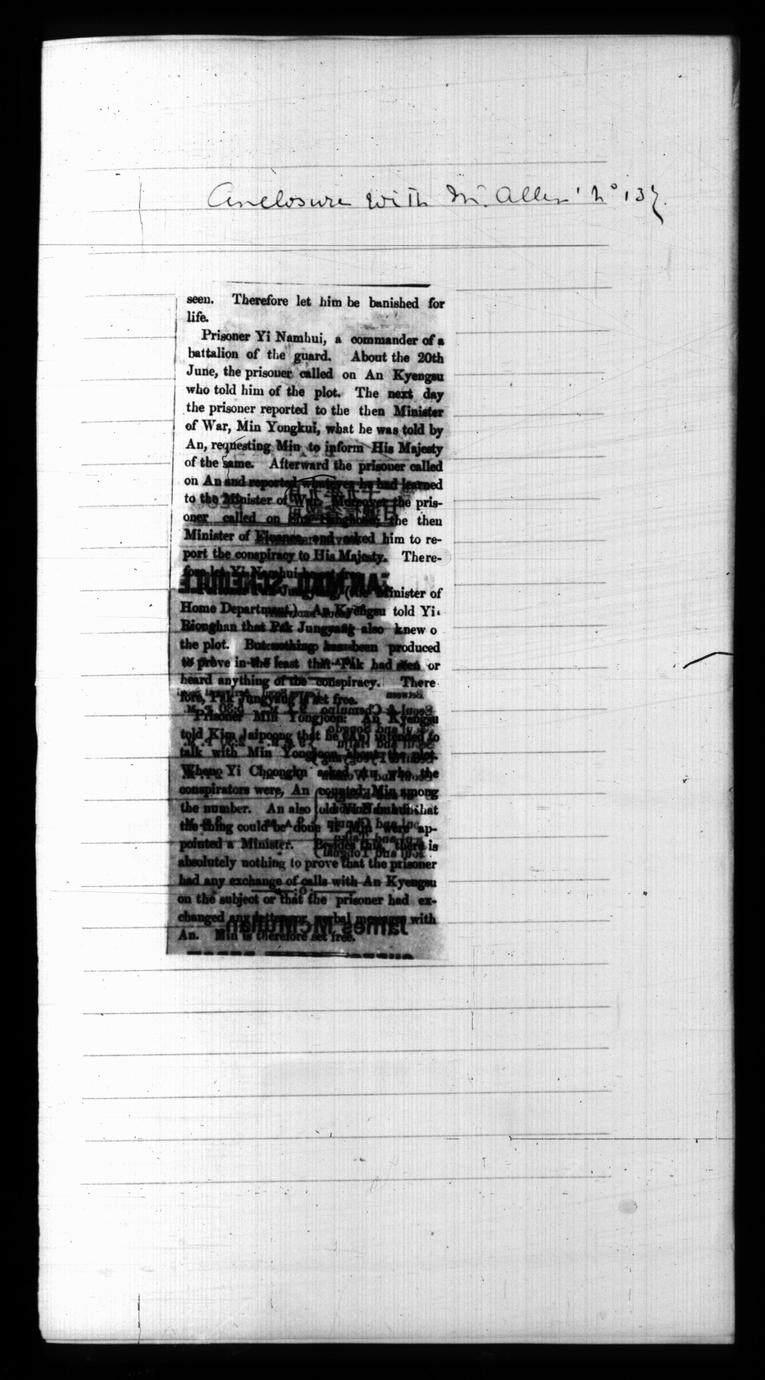 Enclosure with Mr. Allen's No 137.
seen. Therefore let him be banished for
life.
Prisoner Yi Namhui, a commander of a
battalion of the guard. About the 20th
June, the prisoner called on An Kyengsu
who told him of the plot. The next day
the prisoner reported to the then Minister
of War, Min Yongkui, what he was told by
An, requesting Min to inform His Majesty
of the same. Afterward the prisoner called
on An and reported whatever he had learned
to the Minister of War. Moreover the pris-
oner called on the then
Minister of Finance, and asked him to re-
port the conspiracy to His Majesty. There-
fore let Yi Namhui
Minister of
Home Department.) An Kyengsu told Yi
Chonghan that Pak Jungyang also knew o
the plot. But nothing has been produced
to prove in the least that Pak had seen or
heard anything of the conspiracy. There
fore, Pak Jungyang is set free.
Prisoner Min Yongjoon: An Kyengsu
told Kim Jaipoong that he (An) intended to
talk with Min Yongjoon about the plot.
When Yi Choongku asked An who the
conspirators were, An counted Min among
the number. An also told Yi Namhui that
the thing could be done if Min were ap-
pointed a Minister. Besides this, there is
absolutely nothing to prove that the prisoner
had any exchange of calls with An Kyengsu
on the subject or that the prisoner had ex-
changed any letter or verbal message with
An. Min is therefore set free.